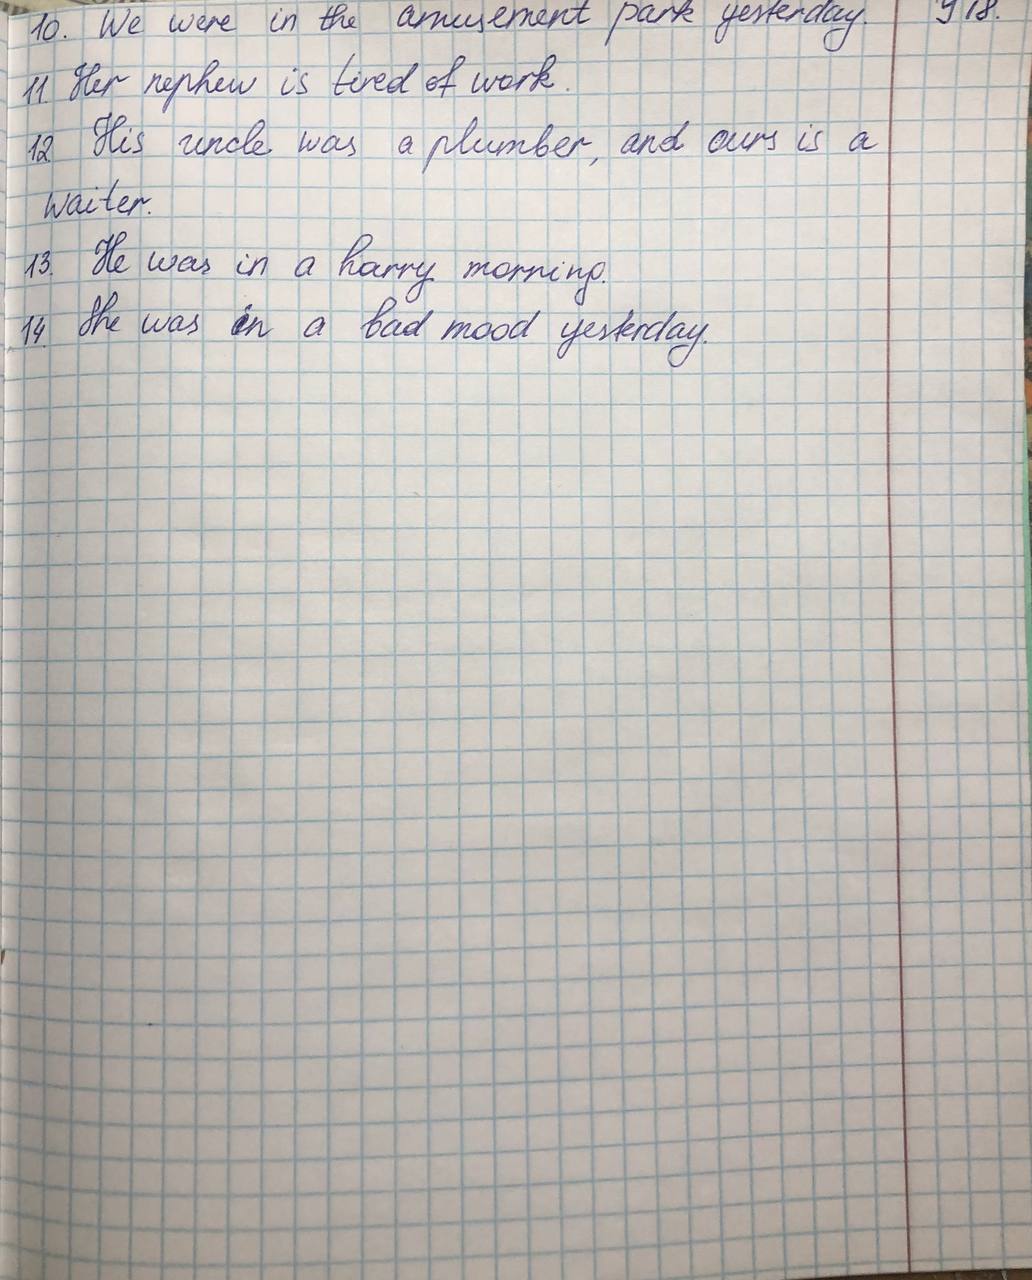 10. We were in the amusement park yesterday. У18.
11. Her nephew is tired of work.
12. His uncle was a plumber, and ours is a
waiter.
13. He was in a harry morning.
14. She was in a bad mood yesterday.